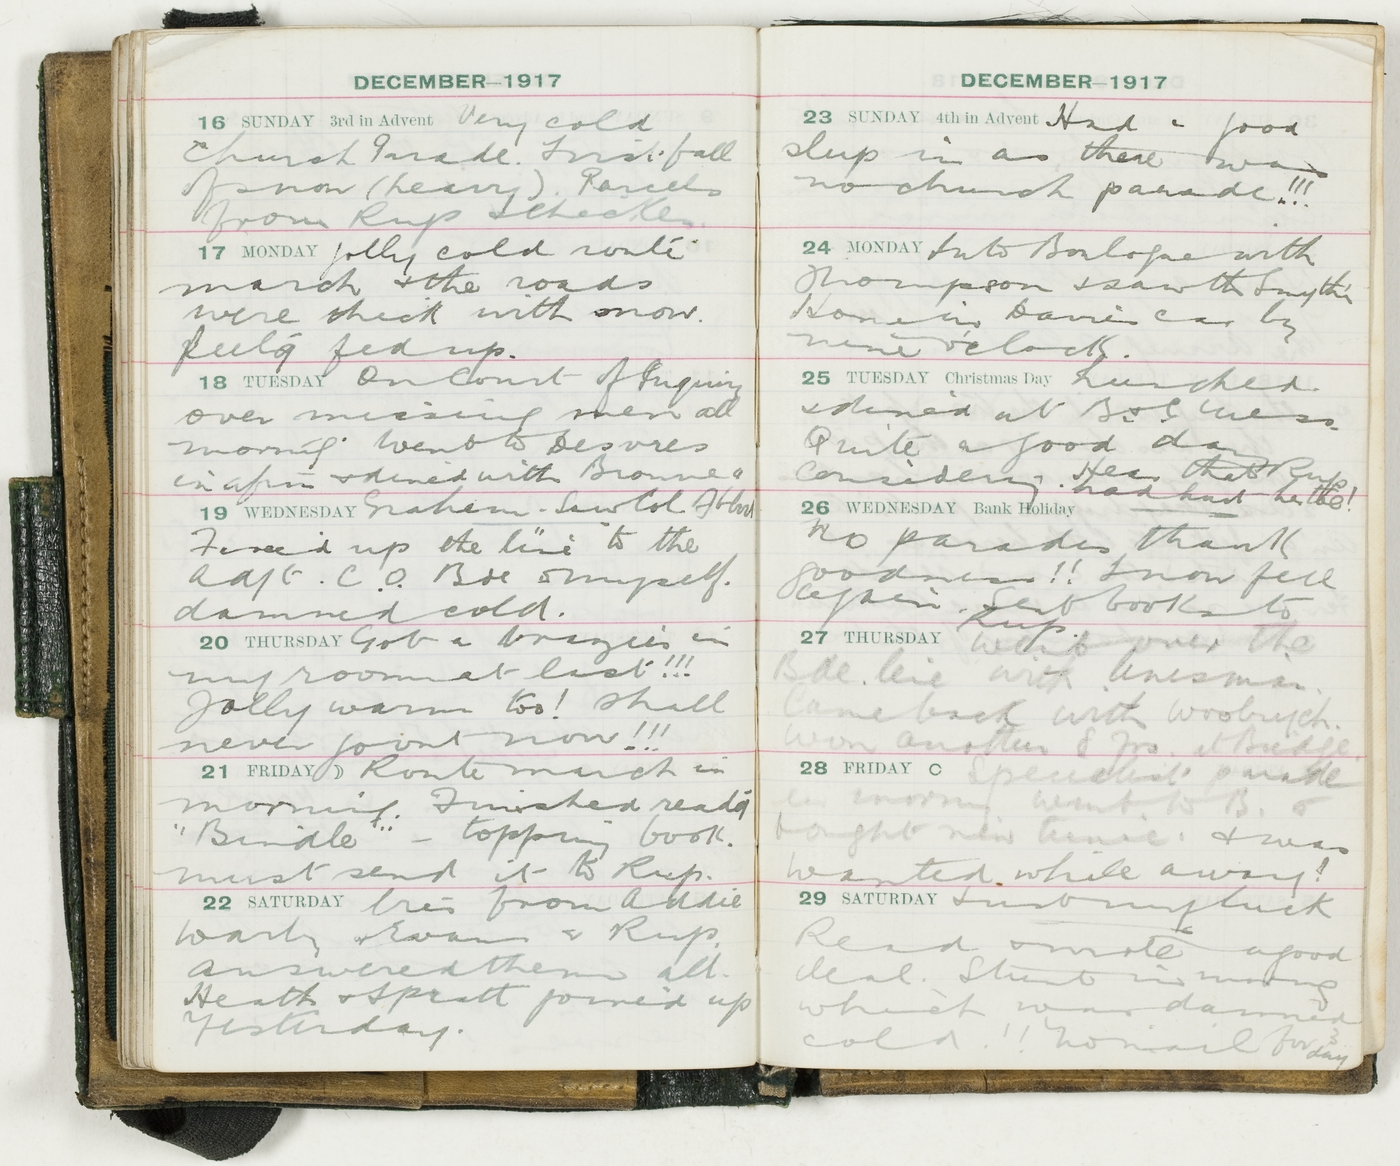 DECEMBER—1917
16 SUNDAY 3rd in Advent Very cold
Church Parade. First fall
of snow (heavy). Parcels
from Rup &
17 MONDAY jolly cold route
march & the roads
were thick with snow.
feelg fed up.
18 TUESDAY On Court of Inquiry
over missing men all
morng. Went to Desvres
in aftn & dined with Browne &
19 WEDNESDAY Graham - Saw Col.
up the line to the
Adjt. C.O. Bde & myself.
damned cold.
20 THURSDAY Got a brazier in
my room at last!!!
Jolly warm too! Shall
never grouse now!!!
21 FRIDAY Route march in
morning. Finished readg
"Bindle" - topping book.
must send it to Rup.
22 SATURDAY from Addie
& Evans & Rup.
answered them all.
Heath & Spratt joined up
yesterday.
DECEMBER—1917
23 SUNDAY 4th in Advent Had a good
sleep in as there was
no church parade!!!
24 MONDAY Into Boulogne with
Thompson & saw the
Home in Davies car by
nine o'clock.
25 TUESDAY Christmas Day Lunched
& dined at B & C Mess.
Quite a good day
considering. Hear that Rup
had hurt
26 WEDNESDAY Bank Holiday
No parades, thank
goodness!! Snow fell
again. Sent books to
Rup.
27 THURSDAY Went over the
Bde. line with linesman.
Came back with
Won another 8 Frs. at Bridge
28 FRIDAY Specialist parade
in morng went to B. &
bought new tunic. & was
wanted while away!
29 SATURDAY Just my luck
Read & wrote a good
deal. Stunt in morng
which was damned
cold.!! No mail for 3
day